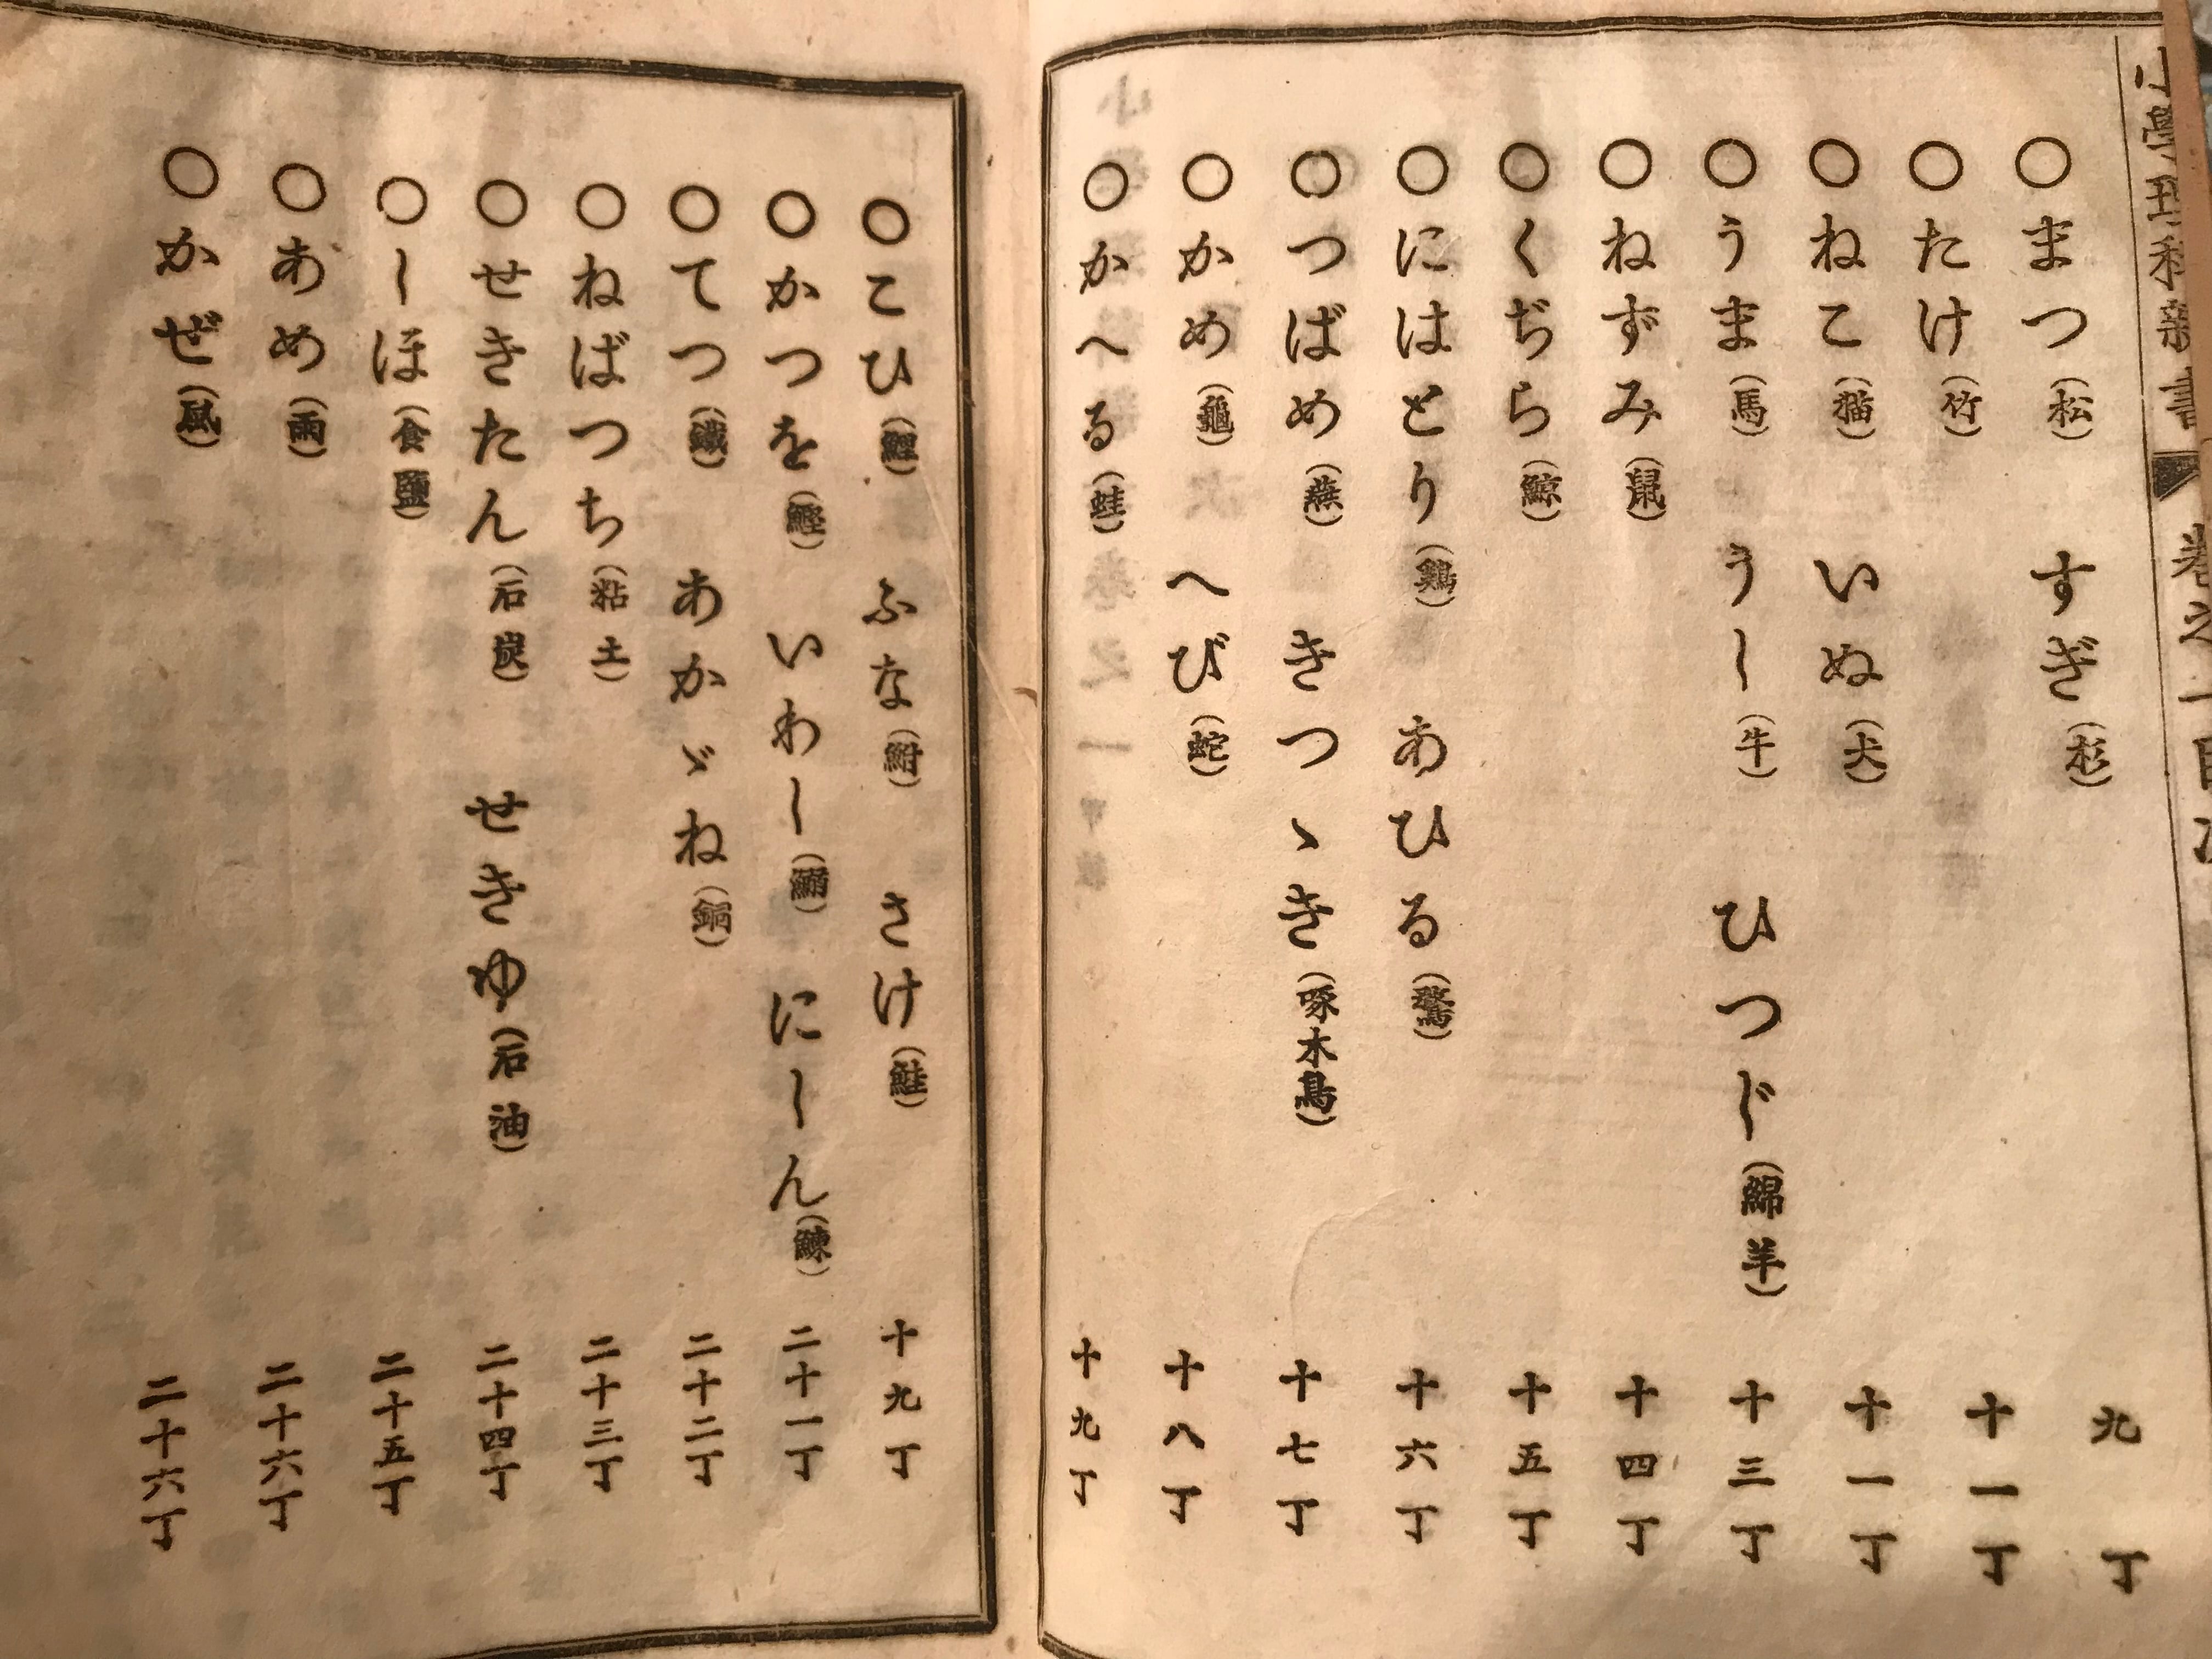 ○まつ(松) すぎ(杉) 九丁
○たけ(竹) 十一丁
○ねこ(猫) いぬ(犬) 十一丁
○うま(馬) うし(牛) ひつじ(綿羊) 十三丁
○ねずみ(鼠) 十四丁
○くぢら(鯨) 十五丁
○にはとり(鶏) あひる(鶩) 十六丁
○つばめ(燕) きつゝき(啄木鳥) 十七丁
○かめ(龜) へび(蛇) 十八丁
○かへる(蛙) 十九丁
○こひ(鯉) ふな(鮒) さけ(鮭) 十九丁
○かつを(鰹) いわし(鰯) にしん(鰊) 二十一丁
○てつ(鐵) あかゞね(銅) 二十二丁
○ねばつち(粘土) 二十三丁
○せきたん(石炭) せきゆ(石油) 二十四丁
○しほ(食鹽) 二十五丁
○あめ(雨) 二十六丁
○かぜ(風) 二十六丁